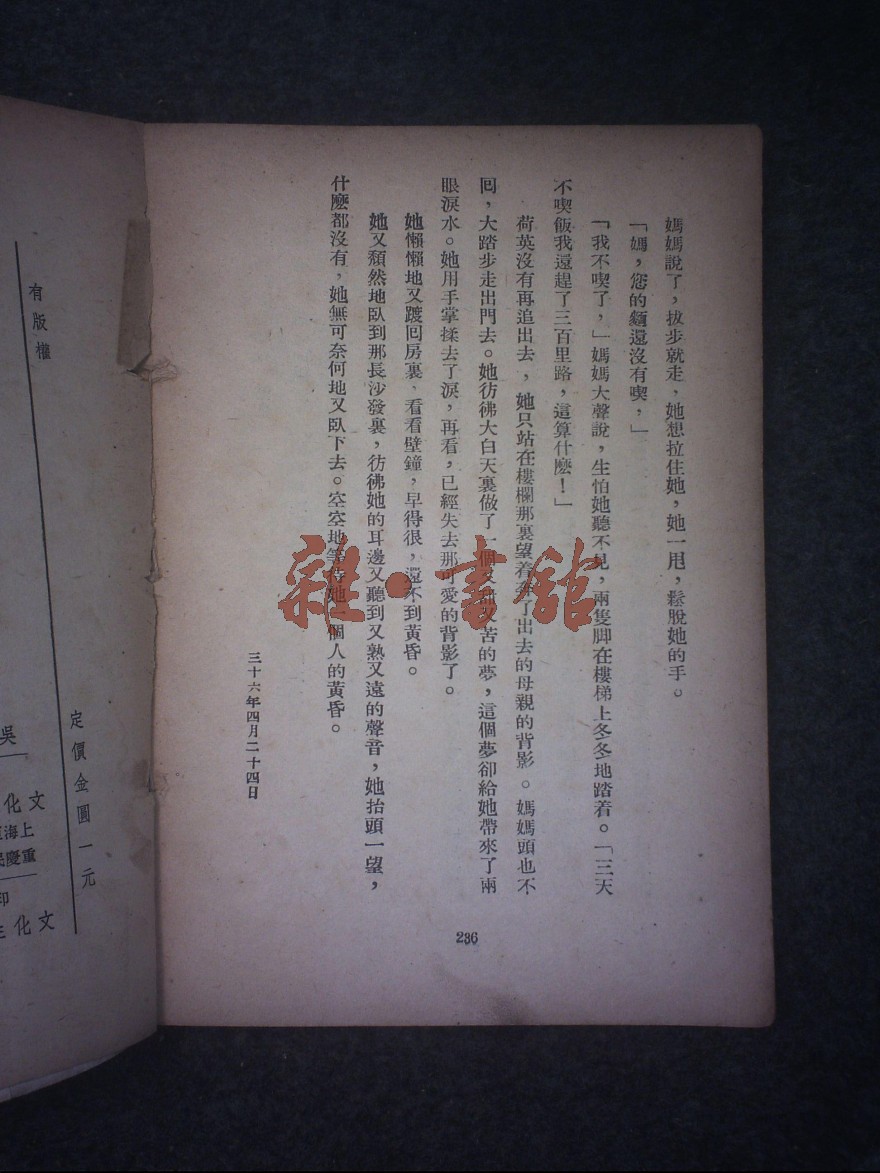 媽媽說了，拔步就走，她想拉住她，她一甩，鬆脫她的手。
「媽，您的麵還沒有喫，」
「我不喫了，」媽媽大聲說，生怕她聽不見，兩隻脚在樓梯上冬冬地踏着。「三天
不喫飯我還趕了三百里路，這算什麽！」
荷英沒有再追出去，她只站在樓欄那裏望着奔了出去的母親的背影。媽媽頭也不
囘，大踏步走出門去。她彷彿大白天裏做了一個又甜又苦的夢，這個夢卻給她帶來了兩
眼淚水。她用手掌揉去了淚，再看，已經失去那可愛的背影了。
她懶懶地又踱囘房裏，看看壁鐘，早得很，還不到黃昏。
她又頹然地臥到那長沙發裏，彷彿她的耳邊又聽到又熟又遠的聲音，她抬頭一望，
什麽都沒有，她無可奈何地又臥下去。空空地等待她一個人的黃昏。
三十六年四月二十四日
236
雜·書館
有版權
定價金圓一元
吳
文化
上海
重慶民
印
文化生